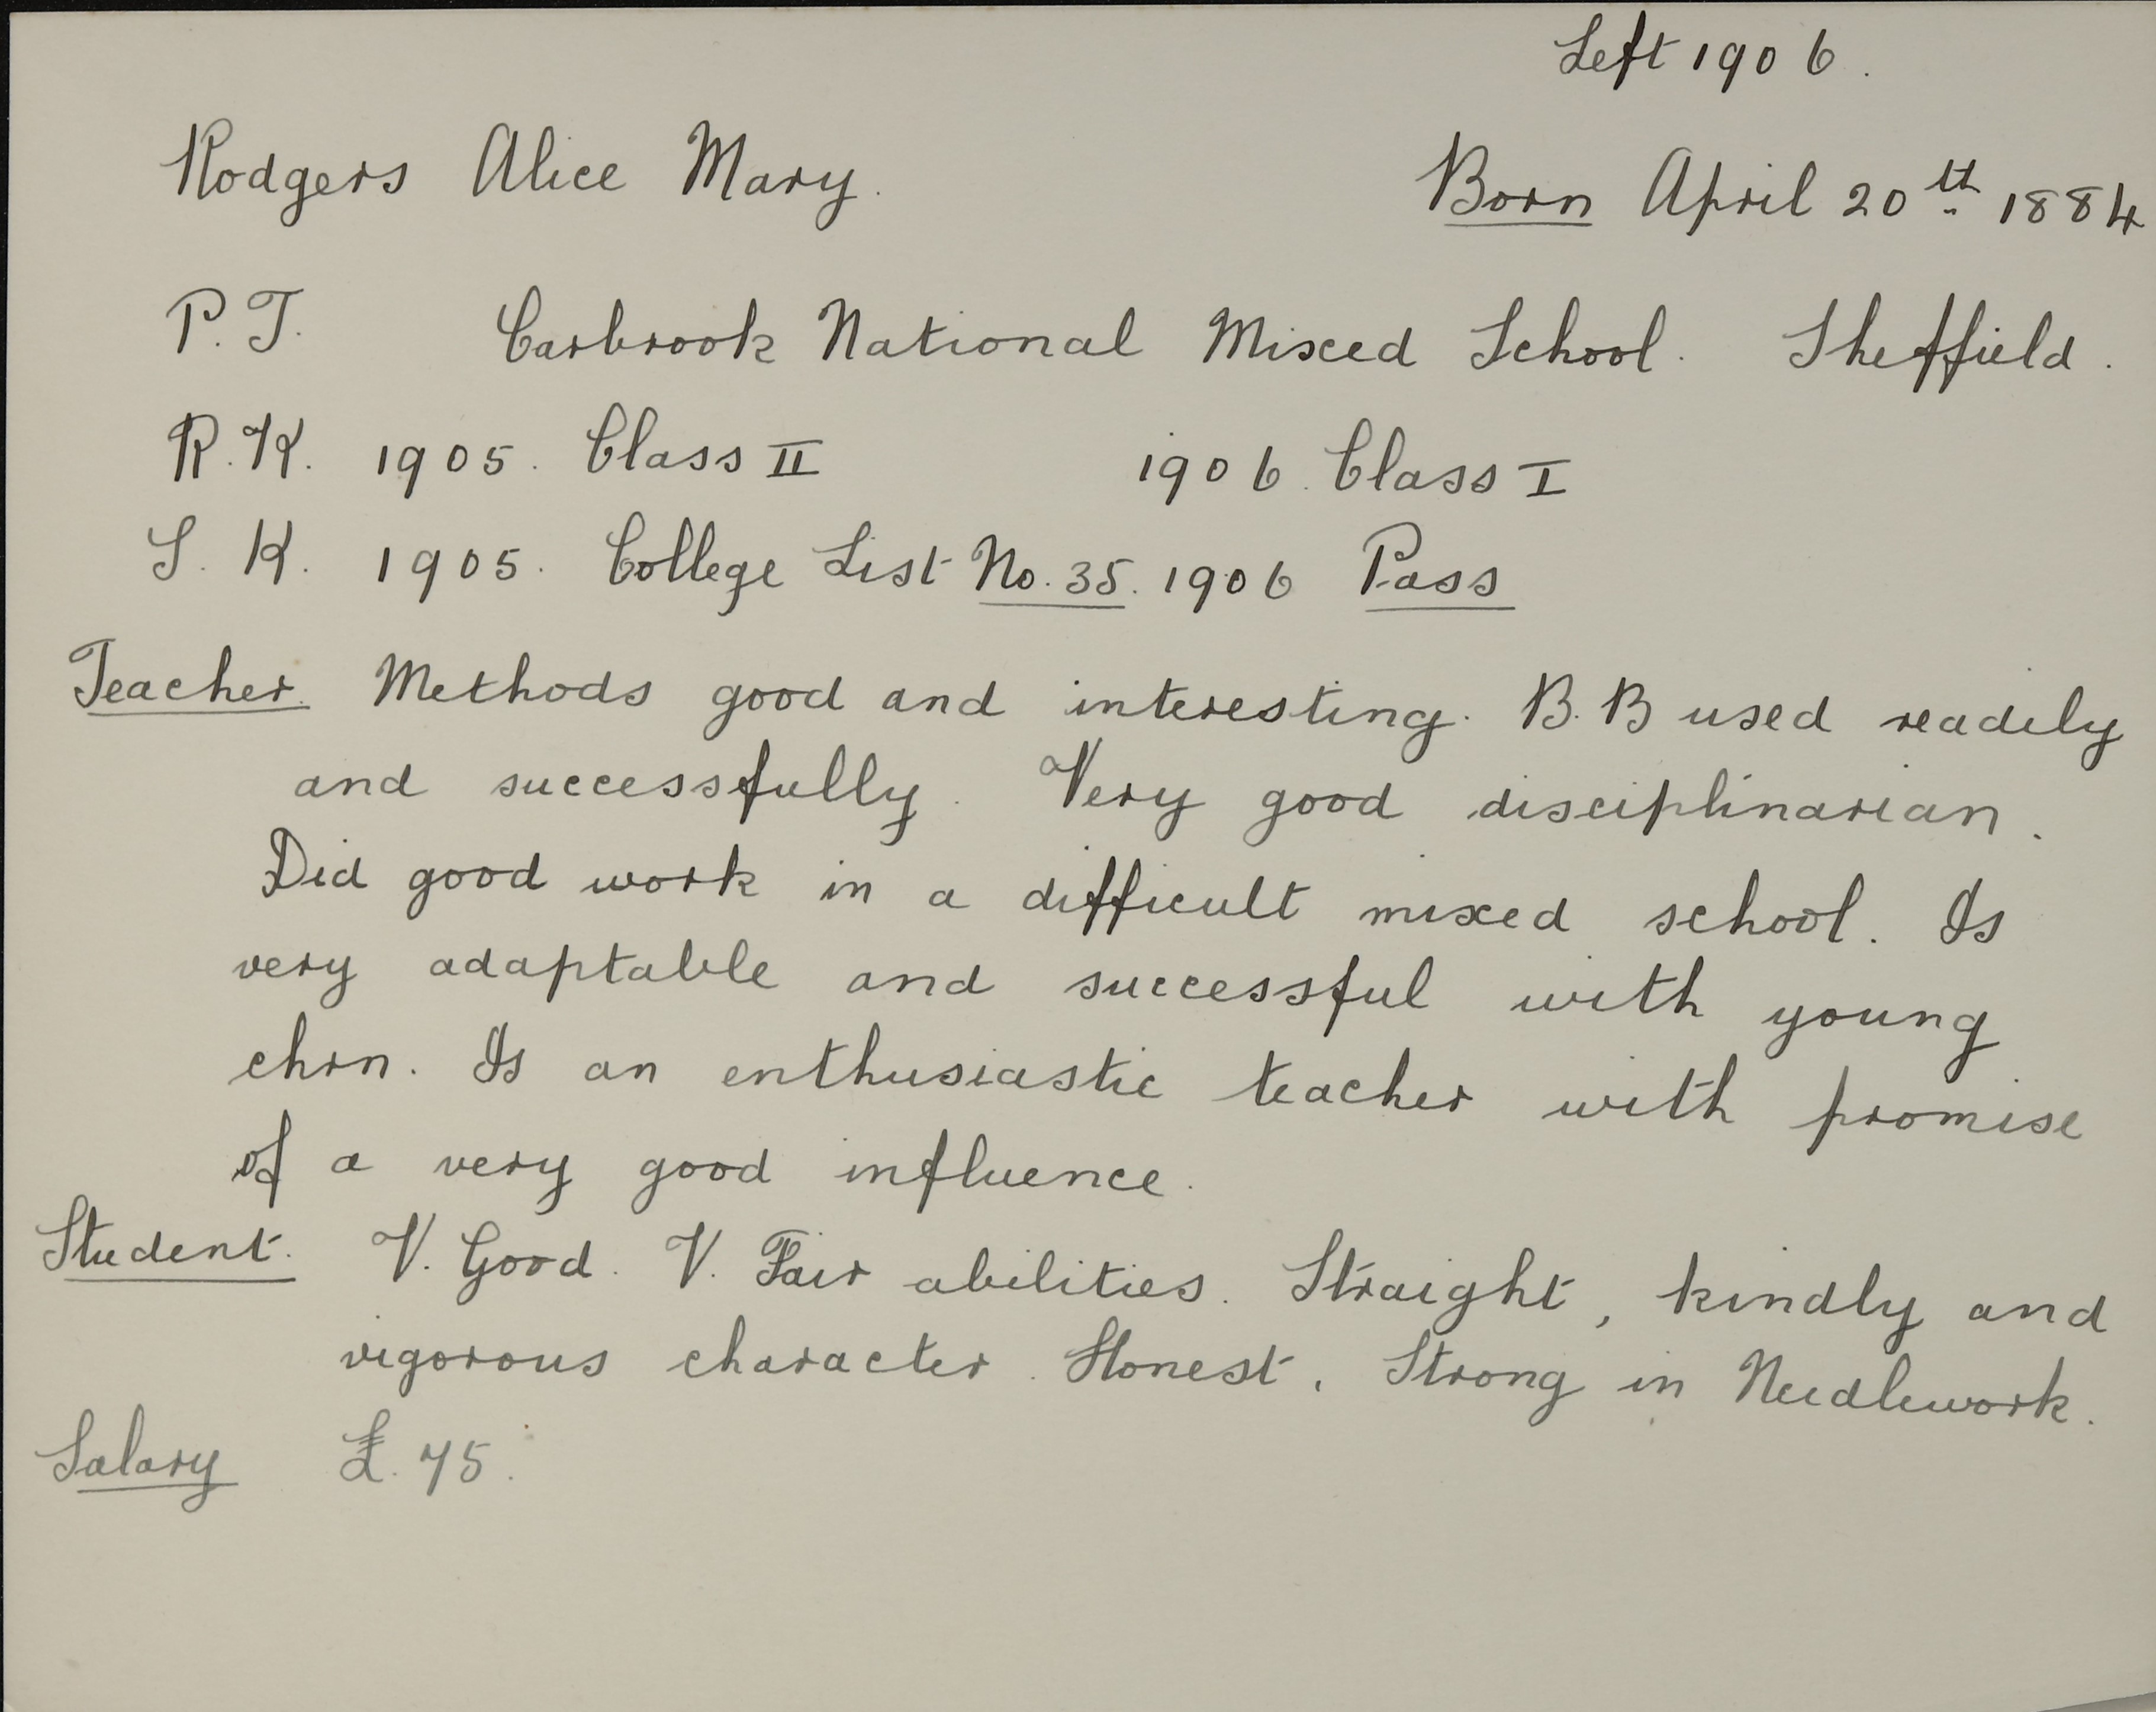 Left 1906.
Rodgers Alice Mary. Born April 20th 1884
P.T. Carbrook National Mixed School. Sheffield.
R.K. 1905. Class II 1906. Class I
S. K. 1905. College List No. 35. 1906 Pass
Teacher. Methods good and interesting. B.B used readily
and successfully. Very good disciplinarian.
Did good work in a difficult mixed school. Is
very adaptable and successful with young
chrn. Is an enthusiastic teacher with promise
of a very good influence.
Student. V. Good. V. Fair abilities. Straight, kindly and
vigorous character. Honest. Strong in Needlework.
Salary £.75.